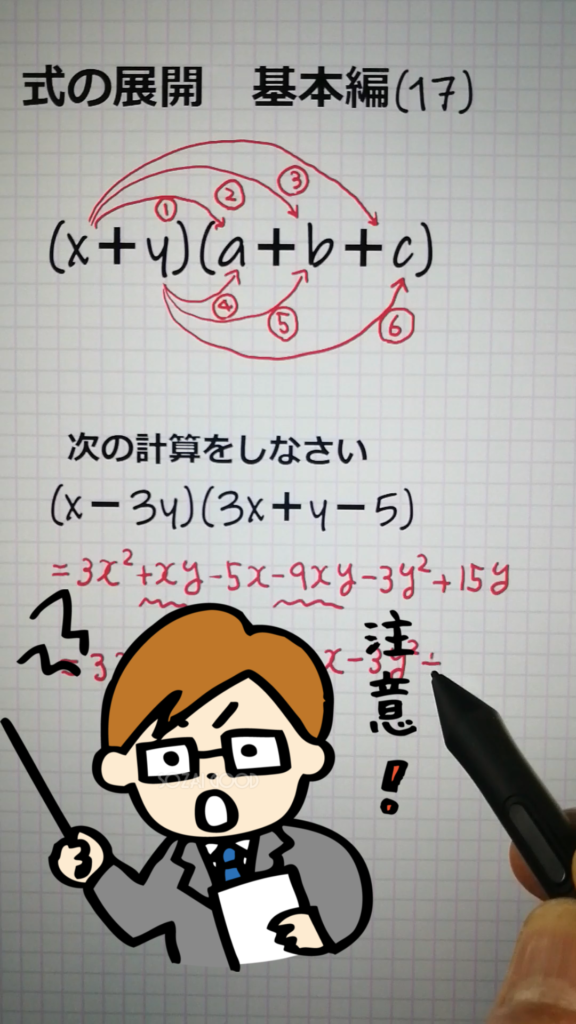 式の展開 基本編(17)
① ② ③
(x+y)(a+b+c)
④ ⑤ ⑥
次の計算をしなさい
(x-3y)(3x+y-5)
=3x²+xy-5x-9xy-3y²+15y
=3 x-3y²+
注意!